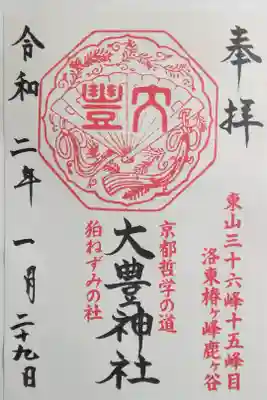 奉拝
東山三十六峰十五峰目
洛東椿ヶ峰鹿ヶ谷
大豊
京都哲学の道
大豐神社
狛ねずみの社
令和二年一月二十九日